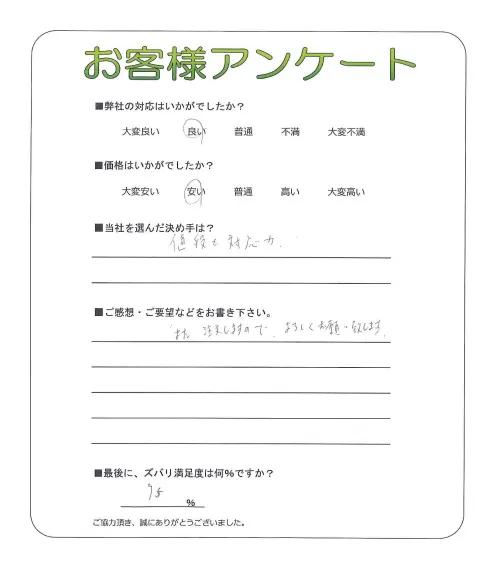 お客様アンケート
■弊社の対応はいかがでしたか?
大変良い 良い 普通 不満 大変不満
■価格はいかがでしたか?
大変安い 安い 普通 高い 大変高い
■当社を選んだ決め手は?
値段と対応力.
■ご感想・ご要望などをお書き下さい。
また 注文しますので、よろしくお願い致します.
■最後に、ズバリ満足度は何%ですか?
%
ご協力頂き、誠にありがとうございました。